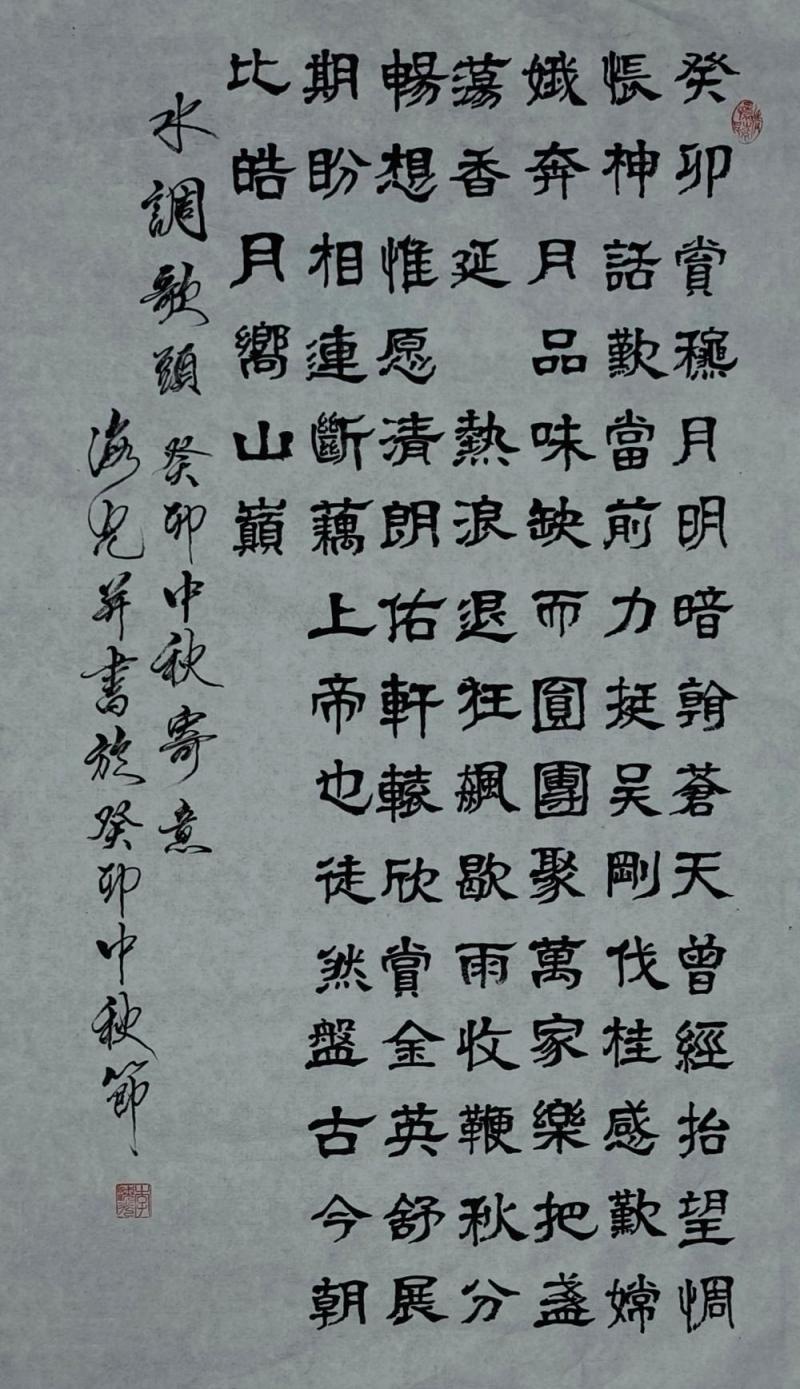 癸卯賞穐月明暗翰蒼天曾經抬望惆
悵神話歎當前力挺吴剛伐桂感歎嫦
娥奔月品味缺而圓團聚萬家樂把盞
蕩香延 熱浪退狂飆歇雨收鞭秋分
暢想惟愿清朗佑軒轅欣賞金英舒展
期盼相連斷藕上帝也徒然盤古今朝
比皓月嚮山巔
水調歌頭 癸卯中秋寄意
海光并書於癸卯中秋節